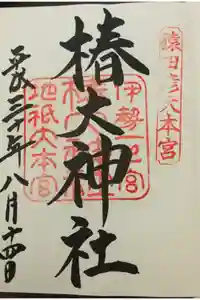 猿田彦大本宮
伊勢一之宮
椿大神社
地祇大本宮
平成三十年八月十四日